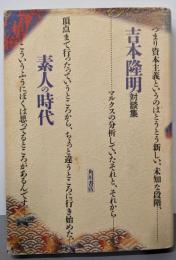 つまり資本主義というのはとうとう新しい、未知な段階、
吉本隆明対談集
マルクスの分析していたそれと、それから
素人の時代
頂点まで行ったっていうところから、ちょっと違うところに行き始めた
こういうふうにぼくは思ってるところがあるんです。
角川書店